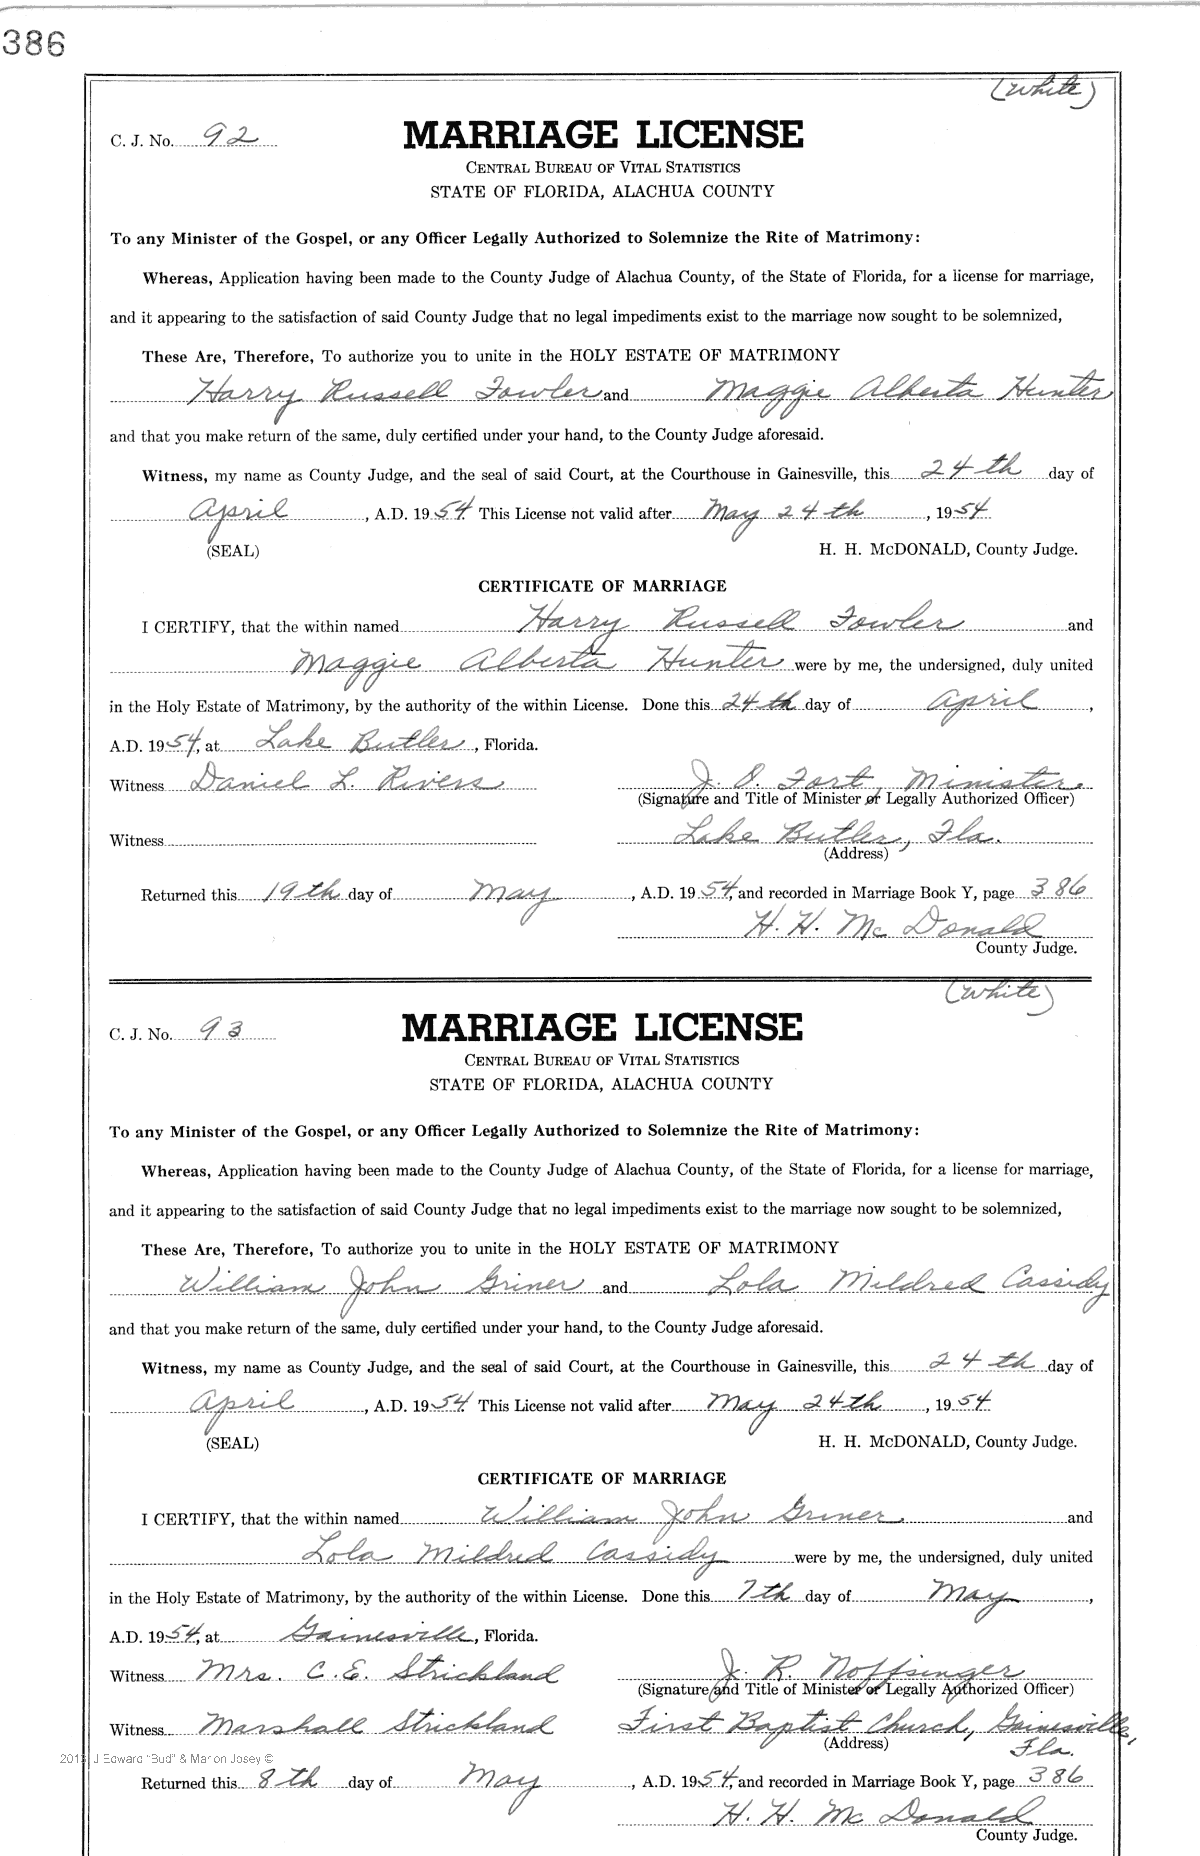 386
(White)
C. J. No. 92
MARRIAGE LICENSE
CENTRAL BUREAU OF VITAL STATISTICS
STATE OF FLORIDA, ALACHUA COUNTY
To any Minister of the Gospel, or any Officer Legally Authorized to Solemnize the Rite of Matrimony:
Whereas, Application having been made to the County Judge of Alachua County, of the State of Florida, for a license for marriage,
and it appearing to the satisfaction of said County Judge that no legal impediments exist to the marriage now sought to be solemnized,
These Are, Therefore, To authorize you to unite in the HOLY ESTATE OF MATRIMONY
Harry Russell Fowler and Maggie Alberta Hunter
and that you make return of the same, duly certified under your hand, to the County Judge aforesaid.
Witness, my name as County Judge, and the seal of said Court, at the Courthouse in Gainesville, this 24th day of
April, A.D. 1954. This License not valid after May 24th, 1954
(SEAL) H. H. McDONALD, County Judge.
CERTIFICATE OF MARRIAGE
I CERTIFY, that the within named Harry Russell Fowler and
Maggie Alberta Hunter were by me, the undersigned, duly united
in the Holy Estate of Matrimony, by the authority of the within License. Done this 24th day of April,
A.D. 1954, at Lake Butler, Florida.
Witness Daniel L. Rivers J. O. Fort, Minister.
(Signature and Title of Minister or Legally Authorized Officer)
Witness Lake Butler, Fla.
(Address)
Returned this 19th day of May, A.D. 1954, and recorded in Marriage Book Y, page 386
H. H. McDonald
County Judge.
(White)
C. J. No. 93
MARRIAGE LICENSE
CENTRAL BUREAU OF VITAL STATISTICS
STATE OF FLORIDA, ALACHUA COUNTY
To any Minister of the Gospel, or any Officer Legally Authorized to Solemnize the Rite of Matrimony:
Whereas, Application having been made to the County Judge of Alachua County, of the State of Florida, for a license for marriage,
and it appearing to the satisfaction of said County Judge that no legal impediments exist to the marriage now sought to be solemnized,
These Are, Therefore, To authorize you to unite in the HOLY ESTATE OF MATRIMONY
William John Griner and Lola Mildred Cassidy
and that you make return of the same, duly certified under your hand, to the County Judge aforesaid.
Witness, my name as County Judge, and the seal of said Court, at the Courthouse in Gainesville, this 24th day of
April, A.D. 1954. This License not valid after May 24th, 1954
(SEAL) H. H. McDONALD, County Judge.
CERTIFICATE OF MARRIAGE
I CERTIFY, that the within named William John Griner and
Lola Mildred Cassidy were by me, the undersigned, duly united
in the Holy Estate of Matrimony, by the authority of the within License. Done this 7th day of May,
A.D. 1954, at Gainesville, Florida.
Witness Mrs. C. E. Strickland J. R. Noffsinger
(Signature and Title of Minister or Legally Authorized Officer)
Witness Marshall Strickland First Baptist Church, Gainesville,
(Address) Fla.
J Edward "Bud" & Marion Josey ©
Returned this 8th day of May, A.D. 1954, and recorded in Marriage Book Y, page 386
H. H. McDonald
County Judge.